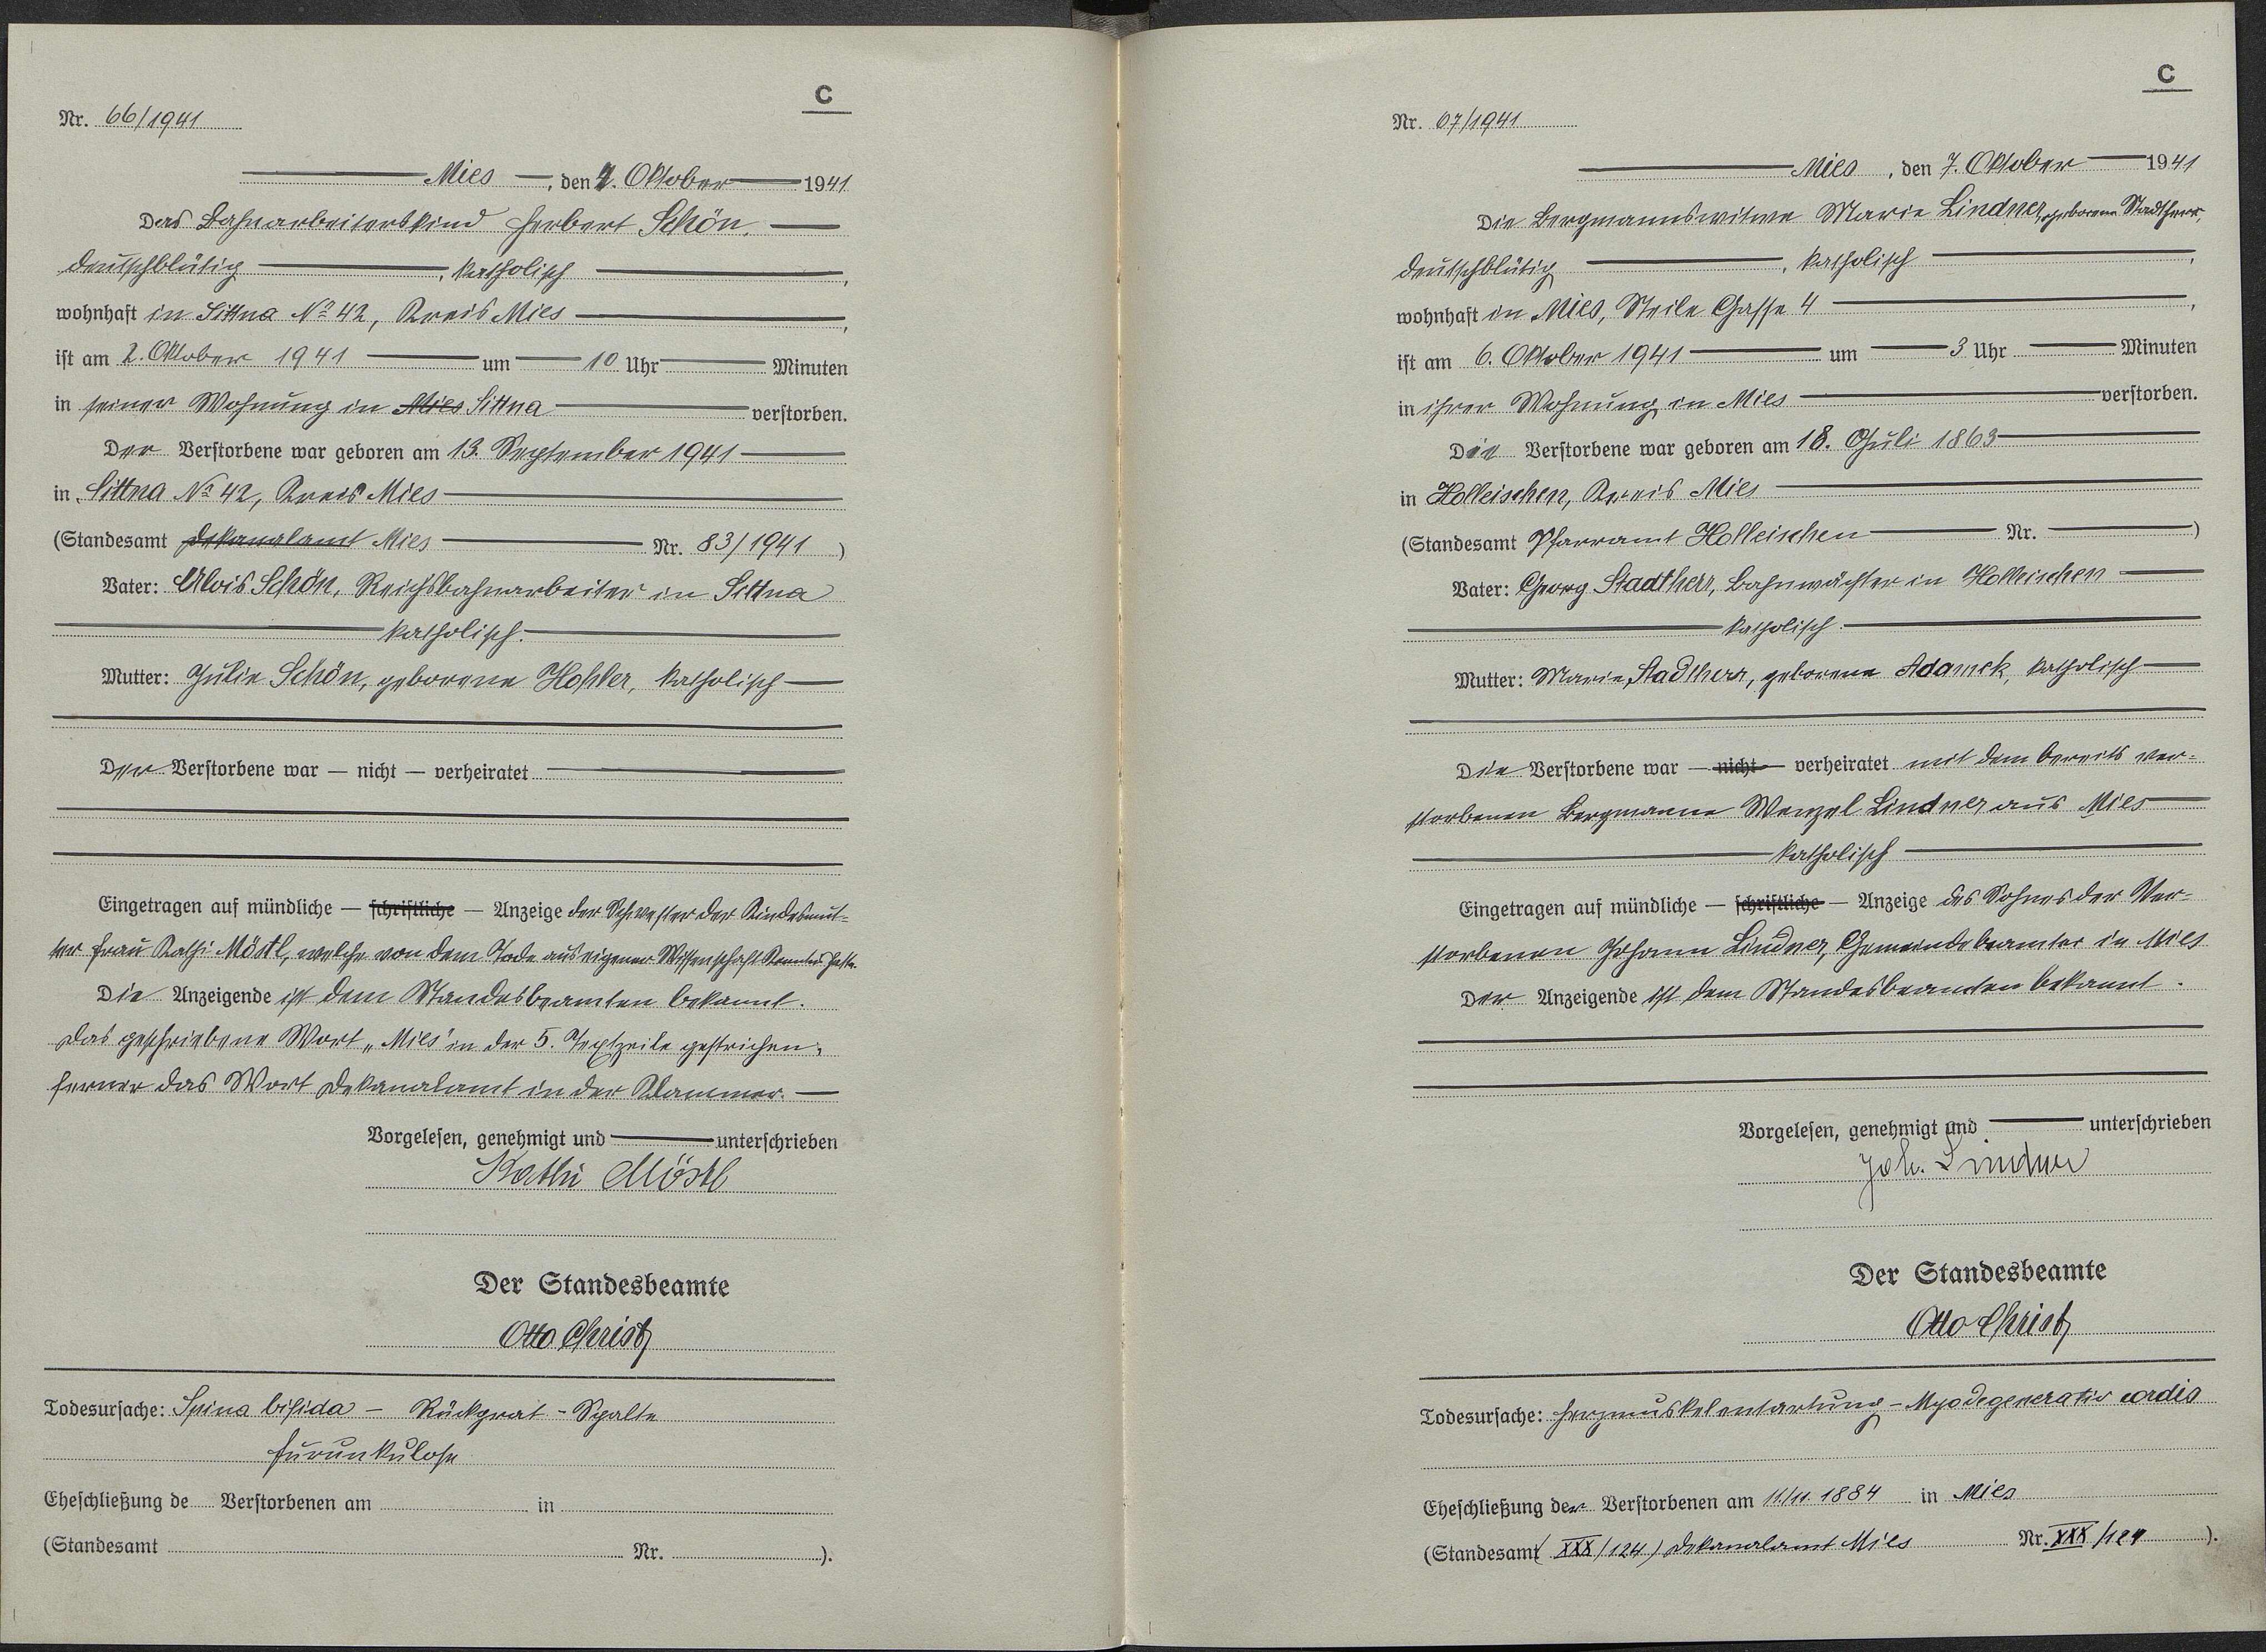 C
Nr. 66/1941
Mies, den 2. Oktober 1941
Das Bahnarbeiterskind Herbert Schön,
deutschblütig, katholisch,
wohnhaft in Sittna No 42, Kreis Mies,
ist am 2. Oktober 1941 um 10 Uhr Minuten
in seiner Wohnung in Mies Sittna verstorben.
Der Verstorbene war geboren am 13. September 1941
in Sittna No 42, Kreis Mies
(Standesamt Dekanalamt Mies Nr. 83/1941)
Vater: Alois Schön, Reichsbahnarbeiter in Sittna
katholisch.
Mutter: Julie Schön, geborene Hohler, katholisch
Der Verstorbene war — nicht — verheiratet
Eingetragen auf mündliche — schriftliche — Anzeige der Schwester der Kindesmut-
ter Frau Kathi Möstl, welche von dem Tode aus eigener Wissenschaft Kenntnis hatte.
Die Anzeigende ist dem Standesbeamten bekannt.
Das geschriebene Wort „Mies" in der 5. Textzeile gestrichen,
ferner das Wort Dekanalamt in der Klammer.
Vorgelesen, genehmigt und unterschrieben
Kathi Möstl
Der Standesbeamte
Otto Christ
Todesursache: Spina bifida - Rückgrat-Spalte
Furunkulose
Eheschließung de Verstorbenen am in
(Standesamt Nr. ).
C
Nr. 67/1941
Mies, den 7. Oktober 1941
Die Bergmannswitwe Marie Lindner, geborene Stadtherr,
deutschblütig, katholisch,
wohnhaft in Mies, Steile Gasse 4,
ist am 6. Oktober 1941 um 3 Uhr Minuten
in ihrer Wohnung in Mies verstorben.
Die Verstorbene war geboren am 18. Juli 1863
in Holleischen, Kreis Mies
(Standesamt Pfarramt Holleischen Nr. )
Vater: Georg Stadtherr, Bahnwächter in Holleischen
katholisch.
Mutter: Marie Stadtherr, geborene Adamek, katholisch
Die Verstorbene war — nicht — verheiratet mit dem bereits ver-
storbenen Bergmanne Wenzel Lindner aus Mies
katholisch
Eingetragen auf mündliche — schriftliche — Anzeige des Sohnes der Ver-
storbenen Johann Lindner, Gemeindebeamter in Mies
Der Anzeigende ist dem Standesbeamten bekannt.
Vorgelesen, genehmigt und unterschrieben
Joh. Lindner
Der Standesbeamte
Otto Christ
Todesursache: Herzmuskelentartung - Myodegeneratio cordis
Eheschließung der Verstorbenen am 11./11. 1884 in Mies
(Standesamt (XXX/124) Dekanalamt Mies Nr. XXX/124).